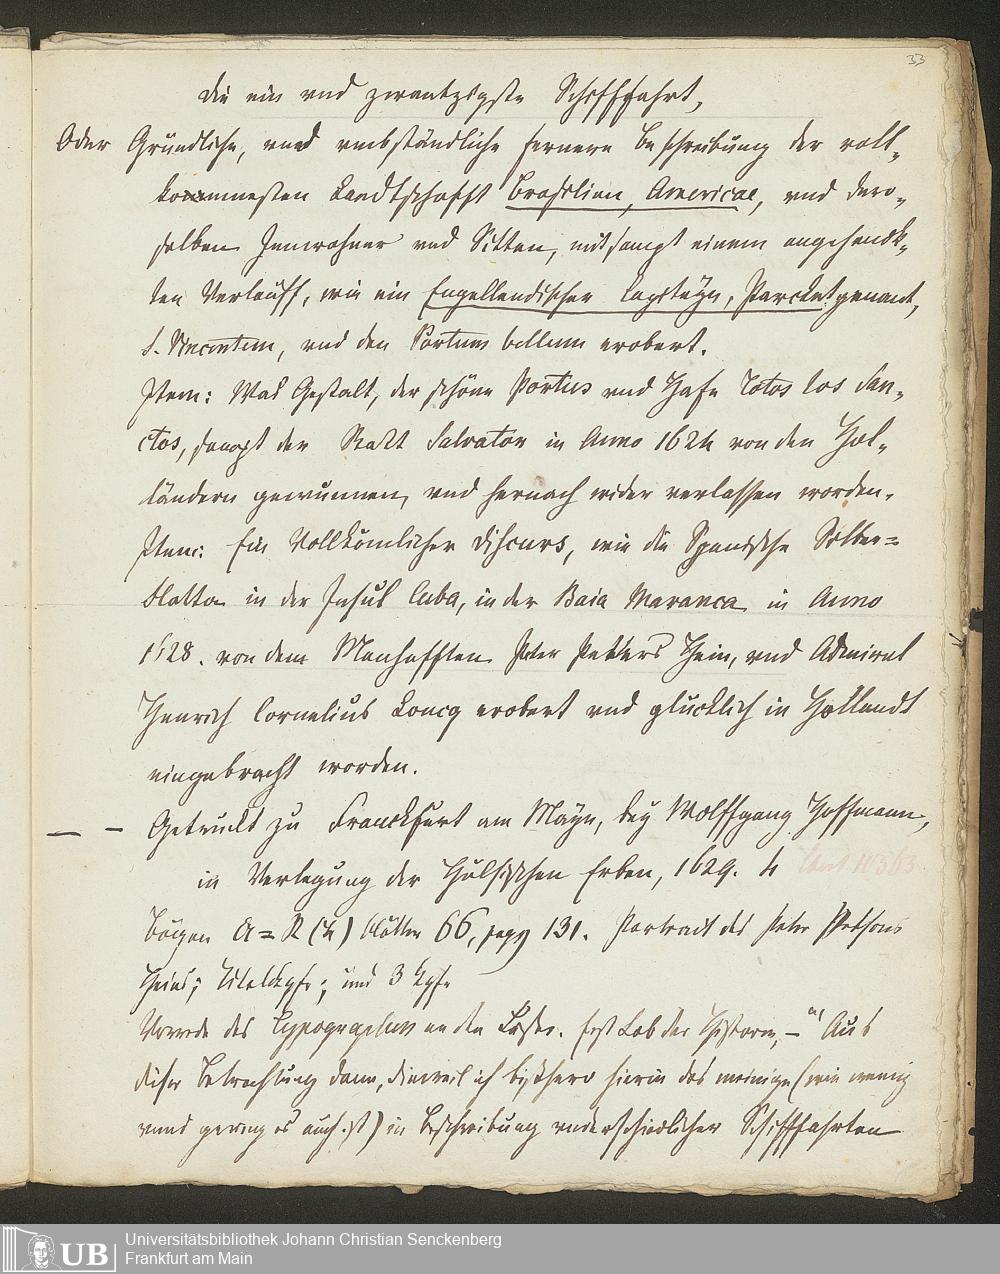 33
Die ein vnd zwantzigste Schifffahrt,
Oder Gründliche, vnnd vmbständliche fernere Beschreibung der voll-
kommnesten Landtschafft Brasilien, Americae, vnd dero-
selben Innwohner vnd Sitten, mitsampt einem angehenck-
ten Verlauff, wie ein Engellendischer Capiteyn, Parcket genant,
S. Vincentem, vnd den Portum bellum erobert.
Item: Was Gestalt, der schöne Portus vnd Hafe Totos los San-
ctos, sampt der Statt Salvator in Anno 1624 von den Hol-
ländern gewunnen, vnd hernach wider verlassen worden.
Item: Ein Vollkömlicher Discurs, wie die Spanische Silber-
Flotta in der Insul Cuba, in der Baia Maranca in Anno
1628. von dem Manhafften Peter Petters Hein, vnd Admiral
Henrich Cornelius Loncq erobert vnd glücklich in Hollandt
eingebracht worden.
— — Getruckt zu Franckfurt am Mayn, bey Wolffgang Hoffmann,
in Verlegung der Hulsischen Erben, 1629. 4
Bögen A=R (4) blätter 66, pagg 131. Portrait des Peter
Heins; Titelkpfr; und 3 Kpfr
Vorrede des Typographus an den Leser. Erst Lob der Historie, – Aus
diser Betrachtung dann, dieweil ich bißhero hierin das meinige (wie wenig
vnnd gering es auch ist) in Beschreibung vnderschiedlicher Schifffahrten
UB
Universitätsbibliothek Johann Christian Senckenberg
Frankfurt am Main